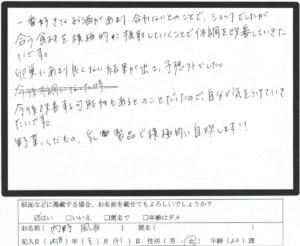 一番好きなお酒があまり合わないとのことで、ショックでしたが
合う食材を積極的に摂取していくことで体調を改善していきた
いです。
卵巣にあまり良くない結果が出て、予想外でした。
今後改善する可能性もあるとのことだったので、自分で気をつけていき
たいです。
野菜、くだもの、乳製品で積極的に自炊します!!
紙面などに掲載する場合、お名前を載せてもよろしいでしょうか?
はい □いいえ □匿名で □年齢はダメ
お名前( ) 匿名( )
記入日( 年( )月( )日 性別(男・女) 年齢( )歳